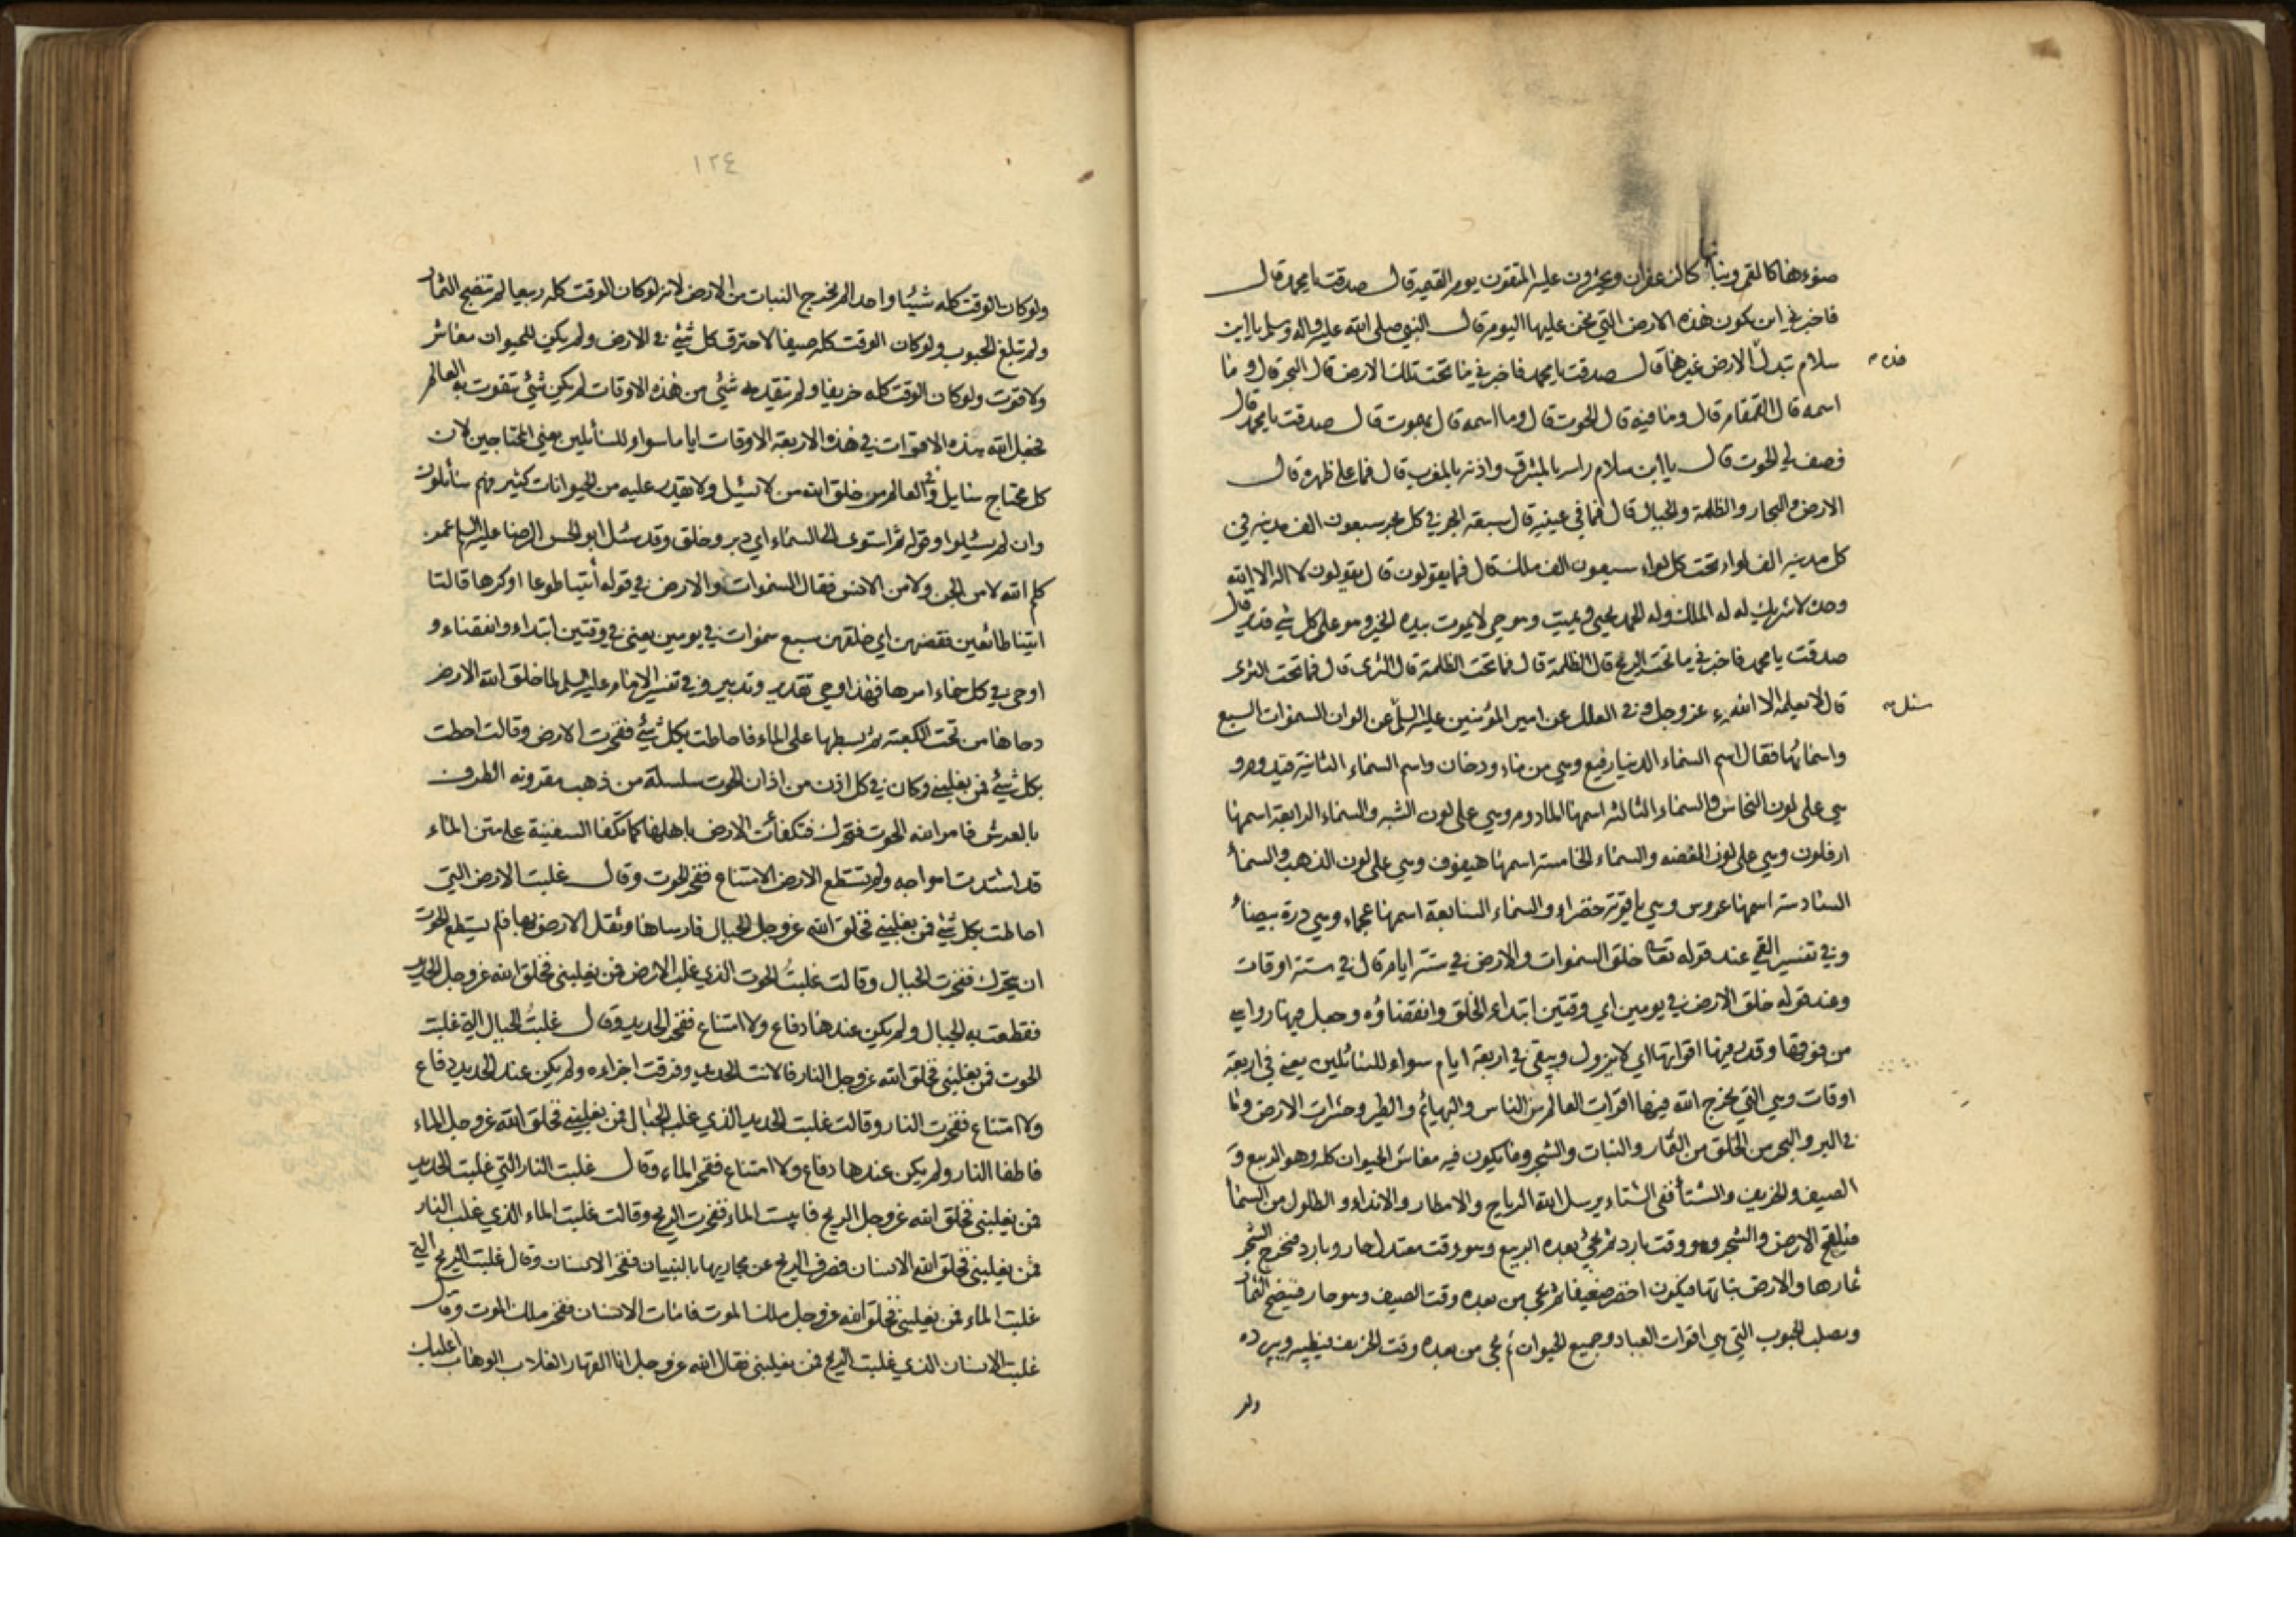 ضوءها كالقمر ونباتها كالزعفران ويحشرون عليه المتقون يوم القيمة قال صدقت يا محمد قال
فاخبرني اين يكون هذه الارض التي نحن عليها اليوم قال النبي صلى الله عليه واله وسلم يا ابن
سلام تبدل الارض غيرها قال صدقت يا محمد فاخبرني ما تحت تلك الارض قال البحر قال وما
اسمه قال القمقام قال وما فيه قال الحوت قال وما اسمه قال بهموت قال صدقت يا محمد قال
فصف لي الحوت قال يا ابن سلام راسه بالمشرق واذنبه بالمغرب قال فما على ظهره قال
الارض والبحار والظلمة والجبال قال فما في عينيه قال سبعة ابحر في كل بحر سبعون الف مدينة في
كل مدينة الف لواء تحت كل لواء سبعون الف ملك قال فما يقولون قال يقولون لا اله الا الله
وحده لا شريك له له الملك وله الحمد يحيي ويميت وهو حي لا يموت بيده الخير وهو على كل شئ قدير قال
صدقت يا محمد فاخبرني ما تحت الريح قال الظلمة قال فما تحت الظلمة قال الثرى قال فما تحت الثرى
قال لا يعلمه الا الله عز وجل وفي العلل عن امير المؤمنين عليه السلم سئل عن الوان السموات السبع
واسمائها فقال اسم السماء الدنيا رفيع وهي من ماء ودخان واسم السماء الثانية قيدوم و
هي على لون النحاس والسماء الثالثة اسمها المادوم وهي على لون الشبه والسماء الرابعة اسمها
ارفلون وهي على لون الفضه والسماء الخامسة اسمها هيفوف وهي على لون الذهب والسماء
السادسة اسمها عروس وهي ياقوتة خضراء والسماء السابعة اسمها عجماء وهي درة بيضاء
وفي تفسير القمي عند قوله تعالى خلق السموات والارض في ستة ايام قال في ستة اوقات
وعند قوله خلق الارض في يومين اي وقتين ابتداء الخلق وانقضاؤه وجعل فيها رواسي
من فوقها وقدر فيها اقواتها اي لا يزول ويبقى في اربعة ايام سواء للسائلين يعني في اربعة
اوقات وهي التي يخرج الله فيها اقوات العالم من الناس والبهائم والطير وحشرات الارض وما
في البر والبحر من الخلق من الثمار والنبات والشجر وما يكون فيه معاش الحيوان كله وهو الربيع و
الصيف والخريف والشتاء ففي الشتاء يرسل الله الرياح والامطار والانداء والطلول من السماء
فيلقح الارض والشجر وهو وقت بارد ثم يجئ بعده الربيع وهو وقت معتدل حار وبارد فيخرج الشجر
ثمارها والارض نباتها فيكون اخضر ضعيفا ثم يجي من بعده وقت الصيف وهو حار فينضج الثمار
ويصلب الحبوب التي هي اقوات العباد وجميع الحيوان ثم يجي من بعده وقت الخريف فيطيبه ويبرده
ولو
١٢٤
ولو كان الوقت كله شيئا واحدا لم يخرج النبات من الارض لانه لو كان الوقت كله ربيعا لم تنضج الثمار
ولم تبلغ الحبوب ولو كان الوقت كله صيفا لاحترق كل شئ في الارض ولم يكن للحيوان معاش
ولا قوت ولو كان الوقت كله خريفا ولم تتقدمه شئ من هذه الاوقات لم يكن شئ تتقوت به العالم
فجعل الله هذه الاقوات في هذه الاربعة الاوقات اياما سواء للسائلين يعني المحتاجين لان
كل محتاج سايل وفي العالم من خلق الله من لا يسئل ولا يقدر عليه من الحيوانات كثير فهم سائلون
وان لم يسئلوا وقوله ثم استوى الى السماء اي دبر وخلق وقد سئل ابو الحسن الرضا عليه السلم عمن
كلم الله لا من الجن ولا من الانس فقال السموات والارض في قوله أئتيا طوعا او كرها قالتا
اتينا طائعين فقضهن اي خلقهن سبع سموات في يومين يعني في وقتين ابتداء وانقضاء و
اوحى في كل سماء امرها فهذا وحي تقدير وتدبير وفي تفسير الامام عليه السلم لما خلق الله الارض
دحاها من تحت الكعبة ثم بسطها على الماء فاحاطت بكل شئ ففخرت الارض وقالت احطت
بكل شئ فمن يغلبني وكان في كل اذن من اذان الحوت سلسلة من ذهب مقرونه الطرف
بالعرش فامر الله الحوت فتحرك فتكفأت الارض باهلها كما تكفا السفينة على متن الماء
قد اشتدت امواجه ولم تستطع الارض الامتناع ففخر الحوت وقال غلبت الارض التي
احاطت بكل شئ فمن يغلبني فخلق الله عز وجل الجبال فارساها وثقل الارض بها فلم يستطع الحوت
ان يتحرك ففخرت الجبال وقالت غلبتُ الحوت الذي غلب الارض فمن يغلبني فخلق الله عز وجل الحديد
فقطعت به الجبال ولم يكن عندها دفاع ولا امتناع ففخر الحديد وقال غلبتُ الجبال التي غلبت
الحوت فمن يغلبني فخلق الله عز وجل النار فالانت الحديد وفرقت اجزاءه ولم يكن عند الحديد دفاع
ولا امتناع ففخرت النار وقالت غلبت الحديد الذي غلب الجبال فمن يغلبني فخلق الله عز وجل الماء
فاطفا النار ولم يكن عندها دفاع ولا امتناع ففخر الماء وقال غلبت النار التي غلبت الحديد
فمن يغلبني فخلق الله عز وجل الريح فايبست الماء ففخرت الريح وقالت غلبت الماء الذي غلب النار
فمن يغلبني فخلق الله الانسان فصرف الريح عن مجاريها بالبنيان ففخر الانسان وقال غلبت الريح التي
غلبت الماء فمن يغلبني فخلق الله عز وجل ملك الموت فامات الانسان ففخر ملك الموت وقال
غلبت الانسان الذي غلبت الريح فمن يغلبني فقال الله عز وجل انا القهار الغلاب الوهاب اغلبك